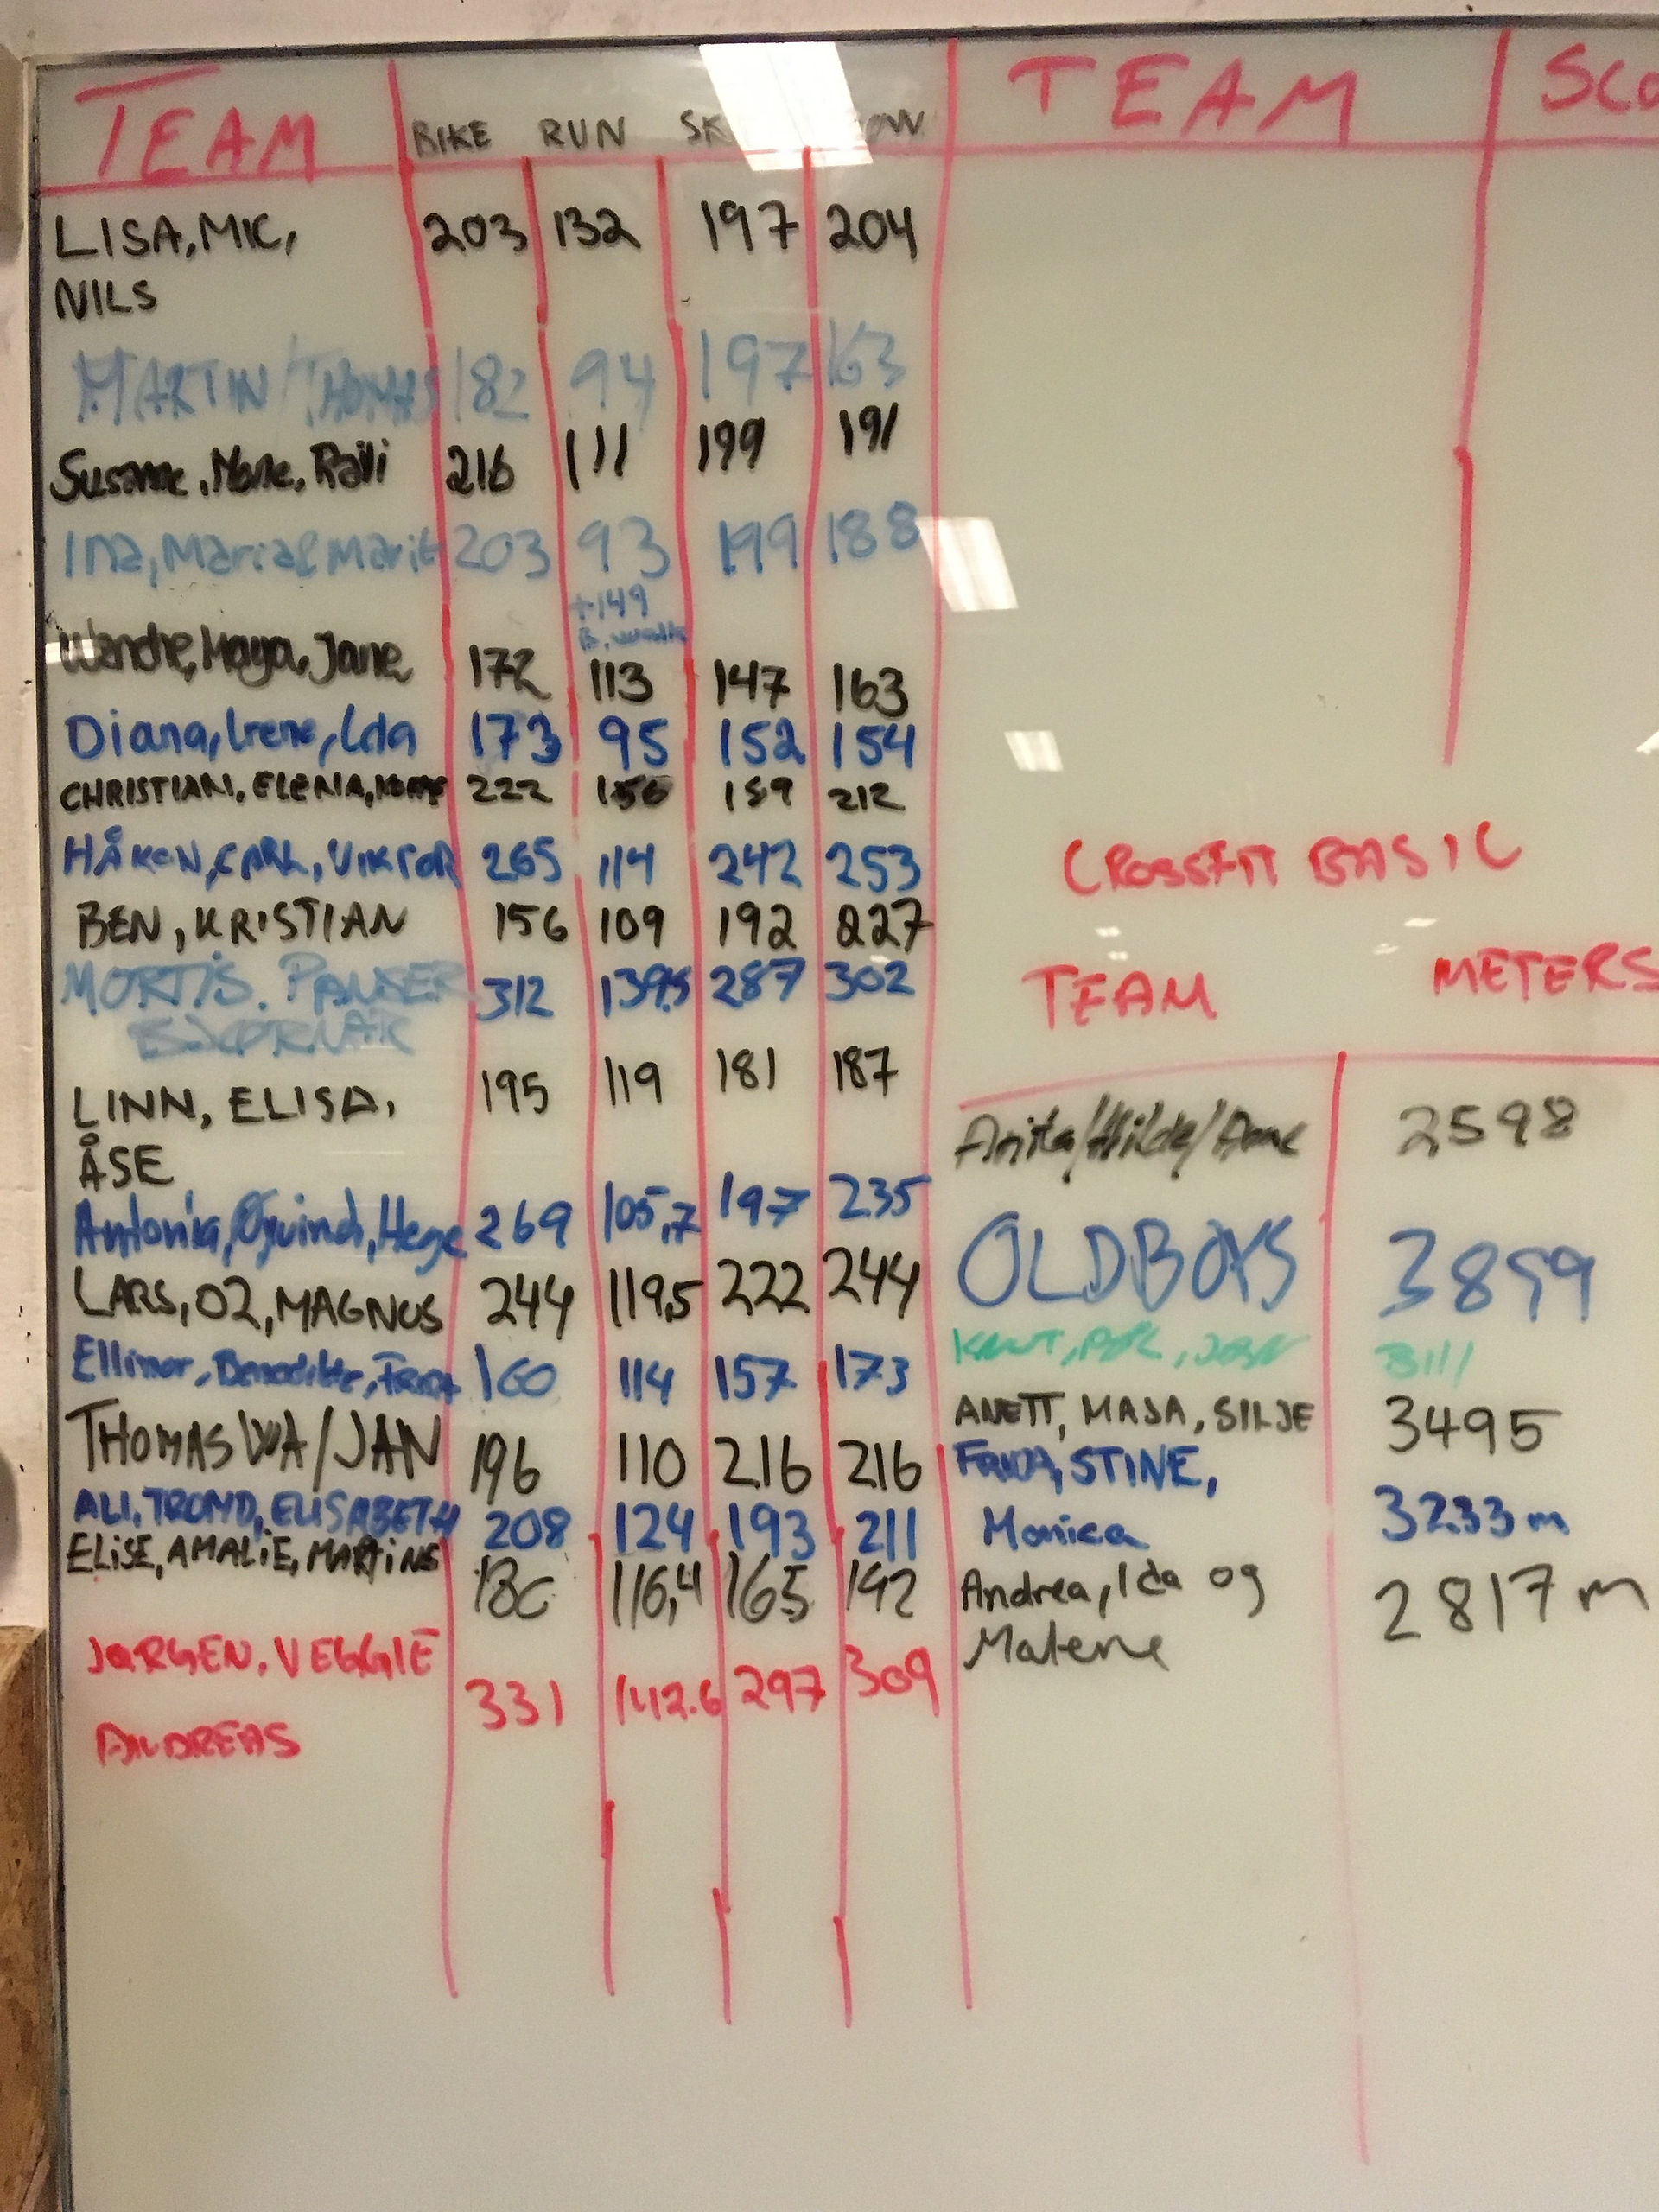 TEAM BIKE RUN
LISA, MIC, 203 132 197 204
NILS
MARTIN/THOMAS 182 94 197 163
Susanne, Mone, Raili 216 111 199 191
Ina, Maria & Marit 203 93 199 188
+149
Wenche, Maya, Jane 172 113 147 163
Diana, Irene, Ida 173 95 152 154
CHRISTIAN, ELENA, 222 212
HÅKON, CARL, VIKTOR 265 114 242 253
BEN, KRISTIAN 156 109 192 227
MORTIS. PANSER 312 139,5 287 302
BJØRNAR
LINN, ELISA, 195 119 181 187
ÅSE
Antonia, Øyvind, Hege 269 105,7 197 235
LARS, OZ, MAGNUS 244 119,5 222 244
Ellinor, Benedikte, Frida 160 114 157 173
THOMAS WA/JAN 196 110 216 216
ALI, TROND, ELISABETH 208 124 193 211
ELISE, AMALIE, MARTINE 180 116,4 165 192
JØRGEN, VEGGIE 331 142.6 297 309
ANDREAS
TEAM
CROSSFIT BASIC
TEAM METERS
Anita/Hilde/Anne 2598
OLDBOYS 3859
KNUT, 3111
ANETT, MASA, SILJE 3495
FRIDA, STINE,
Monica 3233 m
Andrea, Ida og 2817 m
Malene